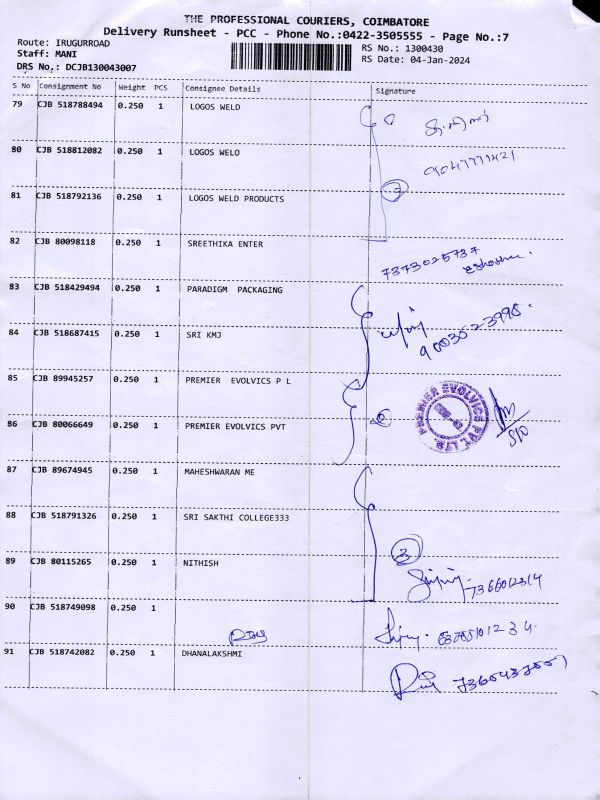 THE PROFESSIONAL COURIERS, COIMBATORE
Delivery Runsheet - PCC - Phone No.:0422-3505555 - Page No.:7
Route: IRUGURROAD
Staff: MANI
DRS No.: DCJB130043007
RS No.: 1300430
RS Date: 04-Jan-2024
S No Consignment No Weight PCS Consignee Details Signature
79 CJB 518788494 0.250 1 LOGOS WELD
80 CJB 518812082 0.250 1 LOGOS WELO
81 CJB 518792136 0.250 1 LOGOS WELD PRODUCTS
82 CJB 80098118 0.250 1 SREETHIKA ENTER
7373025737
83 CJB 518429494 0.250 1 PARADIGM PACKAGING
84 CJB 518687415 0.250 1 SRI KMJ
90030 23998
85 CJB 89945257 0.250 1 PREMIER EVOLVICS P L
86 CJB 80066649 0.250 1 PREMIER EVOLVICS PVT
PREMIER EVOLVICS PVT. LTD.
87 CJB 89674945 0.250 1 MAHESHWARAN ME
88 CJB 518791326 0.250 1 SRI SAKTHI COLLEGE333
3
89 CJB 80115265 0.250 1 NITHISH
90 CJB 518749098 0.250 1
91 CJB 518742082 0.250 1 DHANALAKSHMI